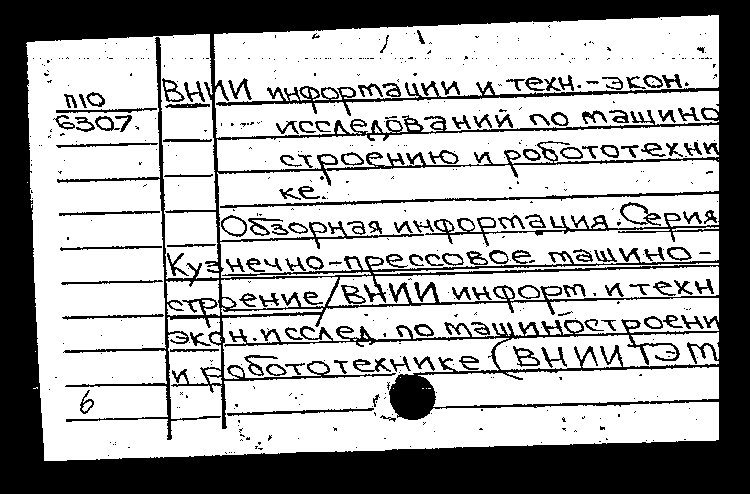 П10
6307.
ВНИИ информации и техн.-экон.
исследований по машино
строению и робототехни
ке.
Обзорная информация. Серия
Кузнечно-прессовое машино-
строение/ВНИИ информ. и техн
экон. исслед. по машиностроени
и робототехнике (ВНИИТЭМ
6